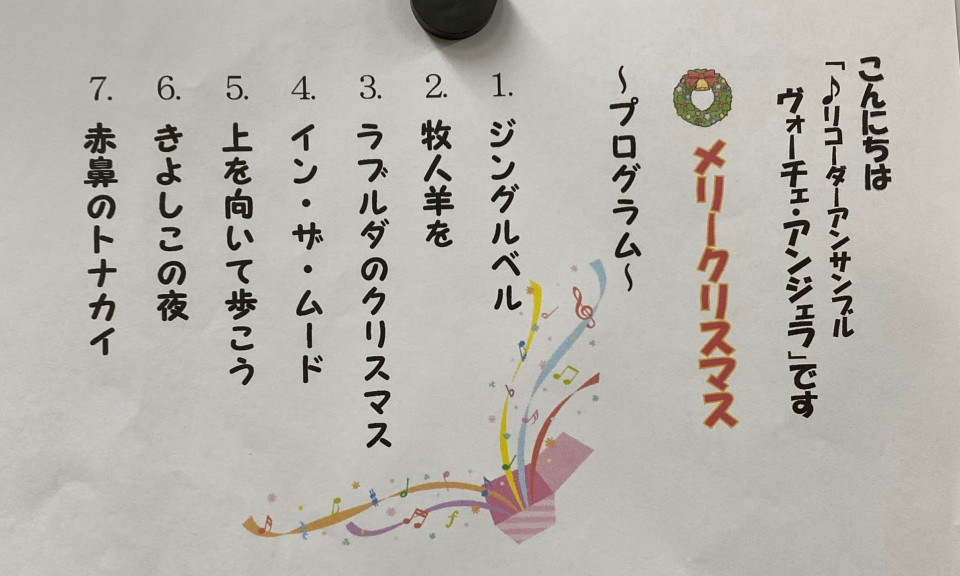 こんにちは
「♪リコーダーアンサンブル
ヴォーチェ・アンジェラ」です
メリークリスマス
～プログラム～
1. ジングルベル
2. 牧人羊を
3. ラブルダのクリスマス
4. イン・ザ・ムード
5. 上を向いて歩こう
6. きよしこの夜
7. 赤鼻のトナカイ